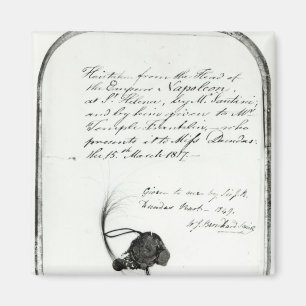 Hair taken from the Head of
the Emperor Napoleon,
at St. Helena, by Mr. Santini;
and by him given to Mr.
Temple Franklin, who
presents it to Miss Dundas.
the 15th March 1817.—
Given to me by
Dundas 1849.